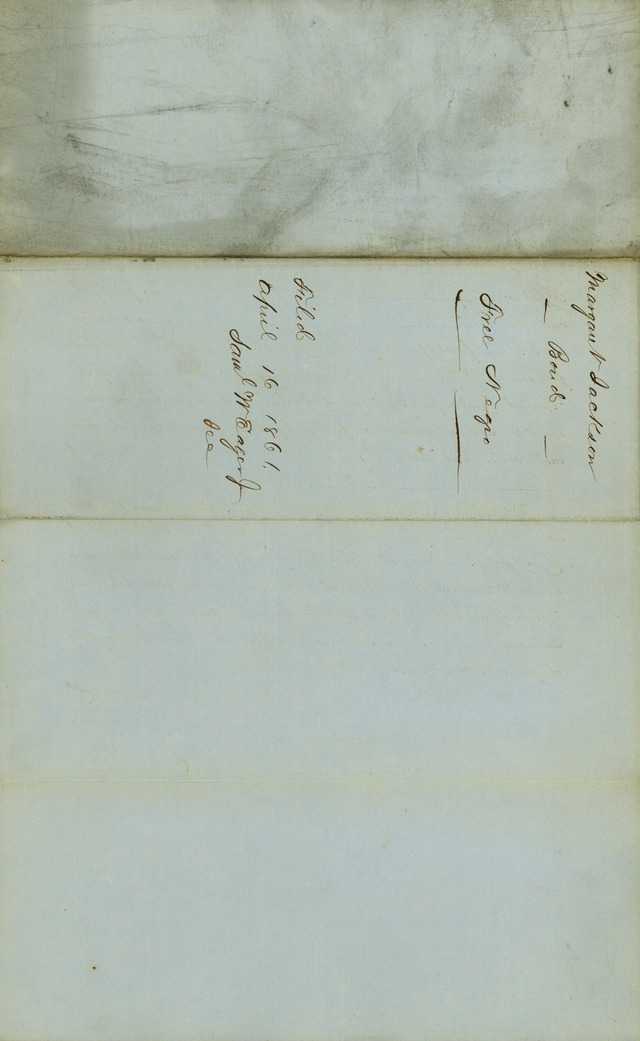 Margaret Jackson
— Bond —
Free Negro
Filed
April 16 1861.
Saml W Eager Jr